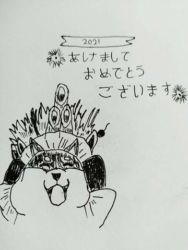 2021
あけまして
おめでとう
ございます